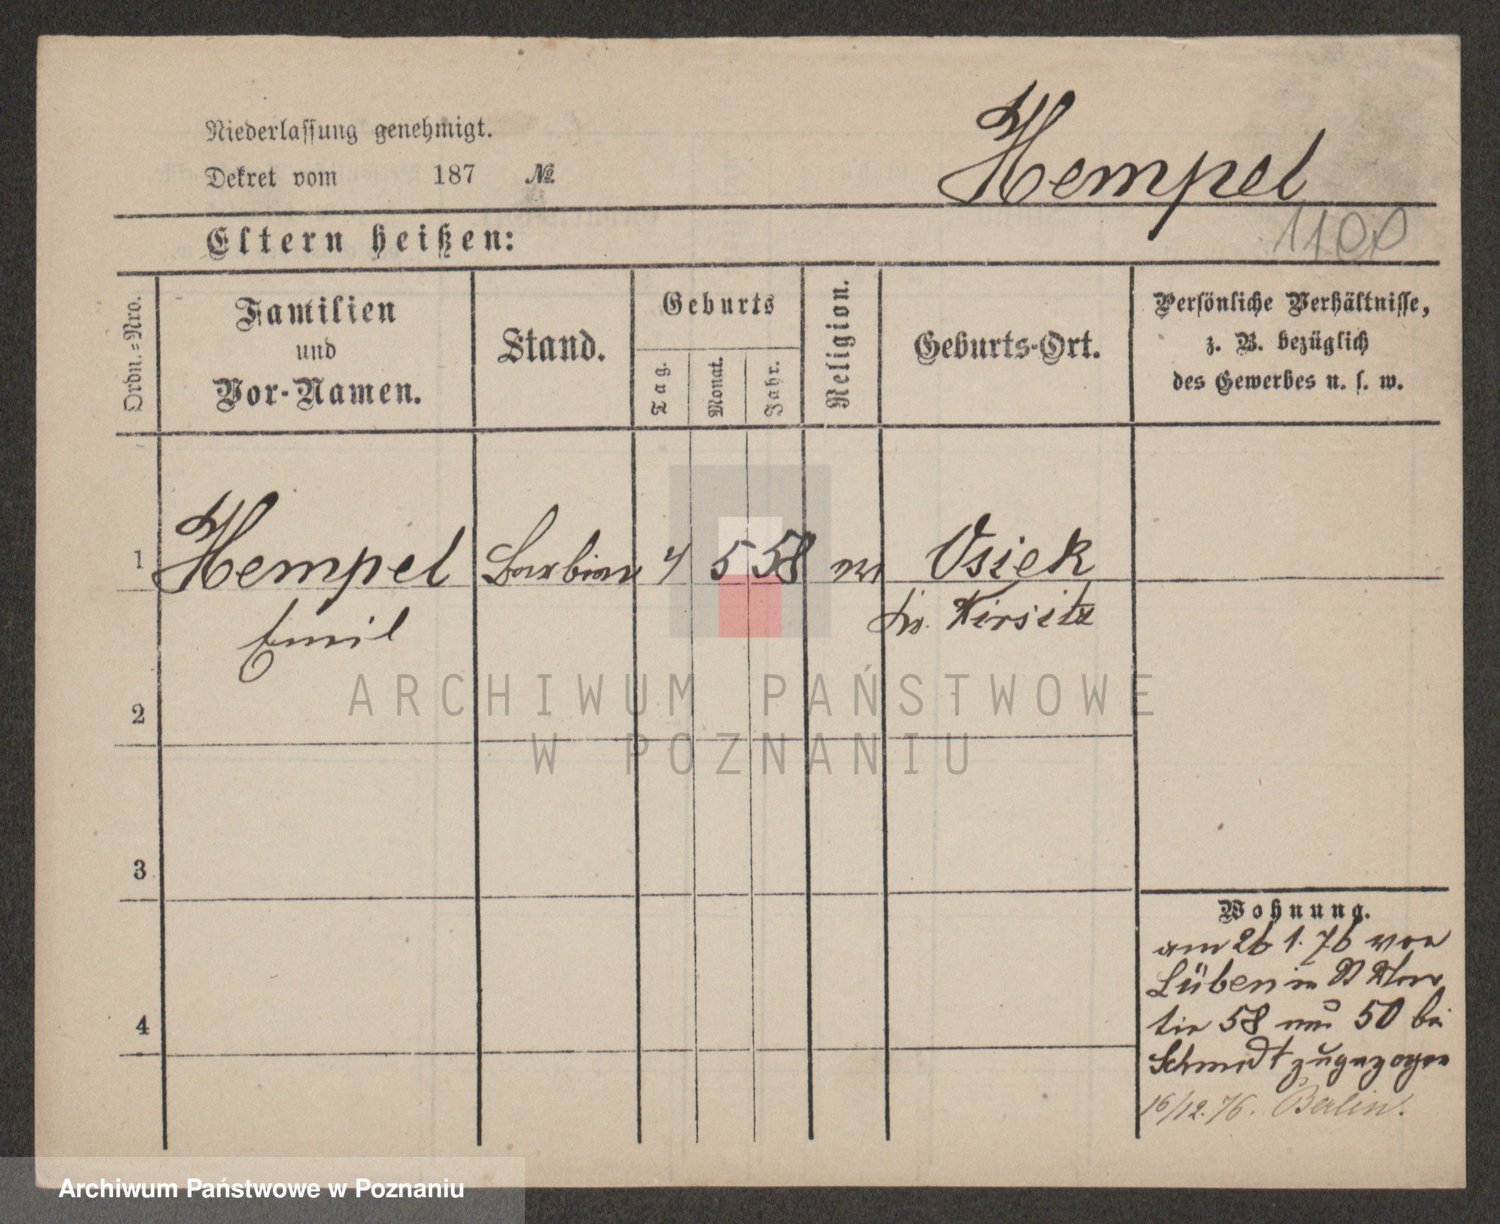 Niederlassung genehmigt.
Dekret vom 187 №
Hempel
1100
Eltern heißen:
Ordn.=Nro.
Familien
und
Vor-Namen.
Stand.
Geburts
Tag.
Monat.
Jahr.
Religion.
Geburts-Ort.
Persönliche Verhältnisse,
z. B. bezüglich
des Gewerbes u. s. w.
1 Hempel Barbier 4 5 58 Osiek
Emil Kr. Wirsitz
ARCHIWUM PAŃSTWOWE
W POZNANIU
2
3
4
Wohnung.
am 26 1. 76 von
Lüben in
58 50 bei
Schmidt zugezogen
16/12. 76. Berlin.
Archiwum Państwowe w Poznaniu